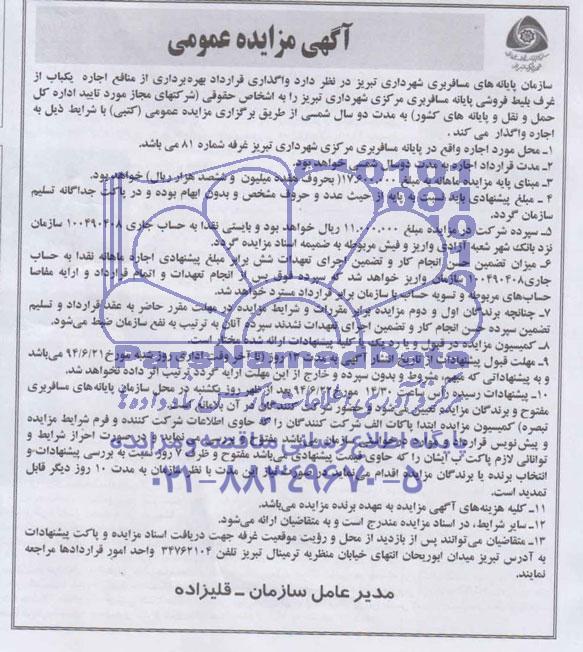 آگهی مزایده عمومی
سازمان پایانه های مسافربری شهرداری تبریز در نظر دارد واگذاری قرارداد بهره برداری از منافع اجاره یکباب از
غرف بلیط فروشی پایانه مسافربری مرکزی شهرداری تبریز را به اشخاص حقوقی (شرکتهای مجاز مورد تایید اداره کل
حمل و نقل و پایانه های کشور) به مدت دو سال شمسی از طریق برگزاری مزایده عمومی (کتبی) با شرایط ذیل به
اجاره واگذار می کند .
۱ـ محل مورد اجاره واقع در پایانه مسافربری مرکزی شهرداری تبریز غرفه شماره ۸۱ می باشد.
۲ـ مدت قرارداد اجاره به مدت دوسال شمسی خواهد بود.
۳ـ مبنای پایه مزایده ماهانه به مبلغ ۱۷،۶۰۰،۰۰۰ (بحروف هفده میلیون و ششصد هزار ریال) خواهد بود.
۴ ـ مبلغ پیشنهادی باید نسبت به پایه از حیث عدد و حروف مشخص و بدون ابهام بوده و در پاکت جداگانه تسلیم
سازمان گردد.
۵ـ سپرده شرکت در مزایده مبلغ ۱۱،۰۰۰،۰۰۰ ریال خواهد بود و بایستی نقدا به حساب جاری ۱۰۰۴۹۰۴۰۸ سازمان
نزد بانک شهر شعبه آزادی واریز و فیش مربوطه به ضمیمه اسناد مزایده گردد.
۶ـ میزان تضمین حسن انجام کار و تضمین اجرای تعهدات شش برابر مبلغ پیشنهادی اجاره ماهانه نقدا به حساب
جاری ۱۰۰۴۹۰۴۰۸ سازمان واریز خواهد شد که سپرده فوق پس از انجام تعهدات و اتمام قرارداد و ارایه مفاصا
حساب‌های مربوطه و تسویه حساب با سازمان برابر قرارداد مسترد خواهد شد.
۷ـ چنانچه برندگان اول و دوم مزایده برابر مقررات و شرایط مزایده در مهلت مقرر حاضر به عقد قرارداد و تسلیم
تضمین سپرده حسن انجام کار و تضمین اجرای تعهدات نشدند سپرده آنان به ترتیب به نفع سازمان ضبط می‌شود.
۸ـ کمیسیون مزایده در قبول و یا رد یک یا کلیه پیشنهادات ارائه شده مختار است.
۹ـ مهلت قبول پیشنهادات از تاریخ انتشار آگهی به مدت ۱۳ روز (تا آخر وقت اداری روز شنبه مورخ ۹۴/۶/۲۱) می‌باشد
و به پیشنهاداتی که مبهم، مشروط و بدون سپرده و خارج از این مهلت ارایه گردد ترتیب اثر داده نخواهد شد.
۱۰ـ پیشنهادات رسیده رأس ساعت ۱۴/۳۰ مورخ ۹۴/۶/۲۲ بعد از ظهر روز یکشنبه در محل سازمان پایانه‌های مسافربری
مفتوح و برندگان مزایده تعیین می‌شود و حضور شرکت کنندگان در آن بلامانع است.
تبصره) کمیسیون مزایده ابتدا پاکات الف شرکت کنندگان را که حاوی اطلاعات شرکت کننده و فرم شرایط مزایده
و پیش نویس قرارداد سازمان می‌باشد مفتوح و بررسی می نماید و در صورت احراز شرایط و
توانائی لازم پاکت ب ایشان را که حاوی قیمت پیشنهادی می‌باشد مفتوح و ظرف ۷ روز نسبت به بررسی پیشنهادات و
انتخاب برنده یا برندگان مزایده اقدام می‌نماید در صورت نیاز این مدت با نظر سازمان به مدت ۱۰ روز دیگر قابل
تمدید است.
۱۱ـ کلیه هزینه‌های آگهی مزایده به عهده برنده مزایده می‌باشد.
۱۲ـ سایر شرایط، در اسناد مزایده مندرج است و به متقاضیان ارائه می‌شود.
۱۳ـ متقاضیان می‌توانند پس از بازدید از محل و رؤیت موقعیت غرفه جهت دریافت اسناد مزایده و پاکت پیشنهادات
به آدرس تبریز میدان ابوریحان انتهای خیابان منظریه ترمینال تبریز تلفن ۳۴۷۶۲۱۰۴ واحد امور قراردادها مراجعه
نمایند.
مدیر عامل سازمان ـ قلیزاده
ParsNamadData
پایگاه اطلاع رسانی مناقصه و مزایده
۰۲۱-۸۸۳۴۹۶۷۰-۵